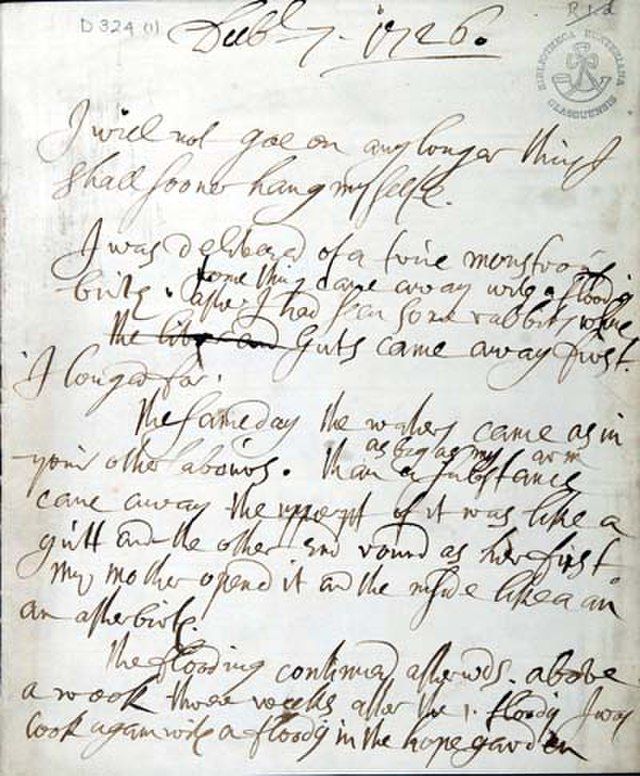 D 324 (1)
Decbr 7. 1726.
BIBLIOTHECA HUNTERIANA
GLASGUENSIS
I will not goe on any longer thus I
shall sooner hang my selfe.
I was delivered of a true monstros
birth. some thing came away with a floodig
after I had seen some rabbits
the liver and Guts came away first.
I longed for.
the same day the waters came as in
your other labours. than a substance
as big as my arm
came away the uppert of it was like a
gutt and the other end round as her fist
My mother opend it and the inside like a an
an afterbirth.
the flooding continued afterwds. above
a week three weeks after the 1. floodig I was
took again with a floodig in the hope garden